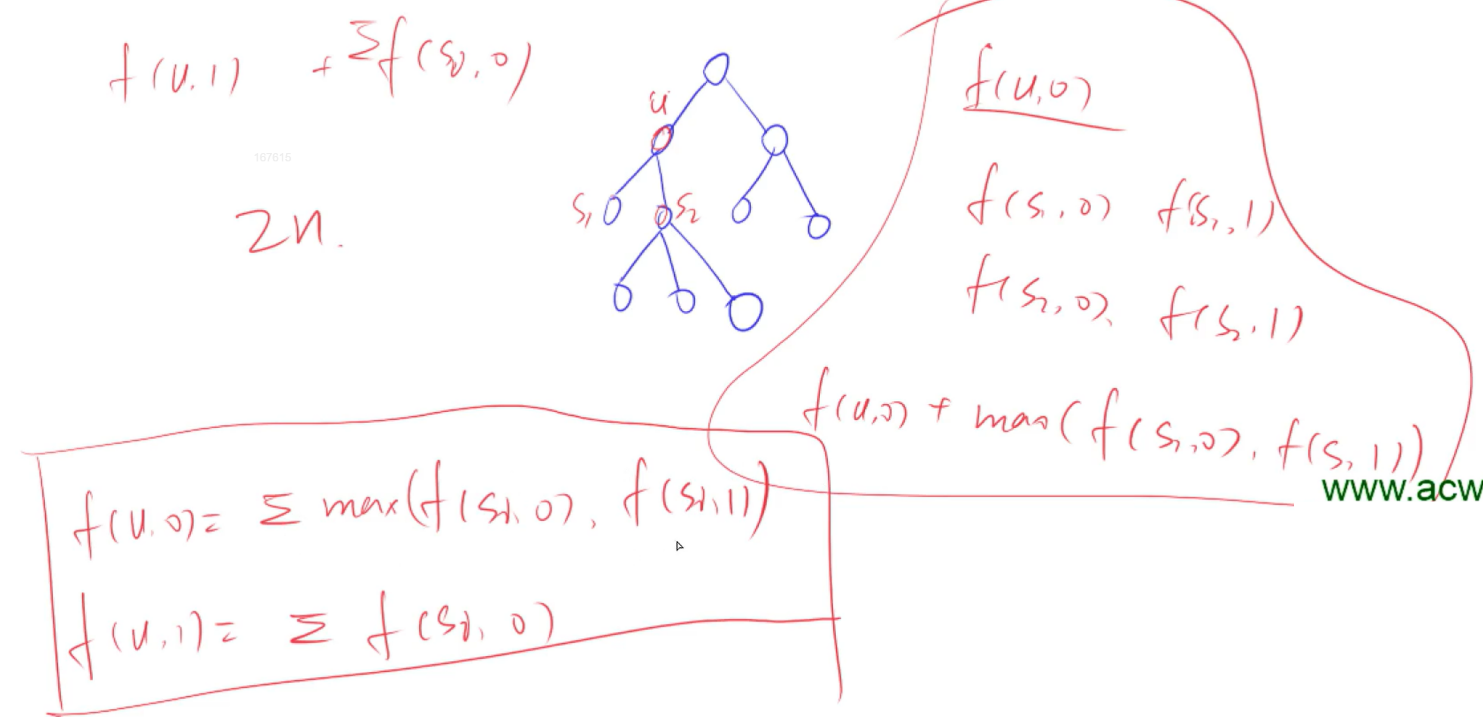 f(u,1) + Σf(si,0)
167615
2n.
u
s1
s2
f(u,0)
f(s1,0) f(s1,1)
f(s2,0), f(s2,1)
f(u,0) + max(f(s1,0), f(s1,1))
www.acw
f(u,0)= Σ max(f(si,0), f(si,1))
f(u,1)= Σ f(si,0)